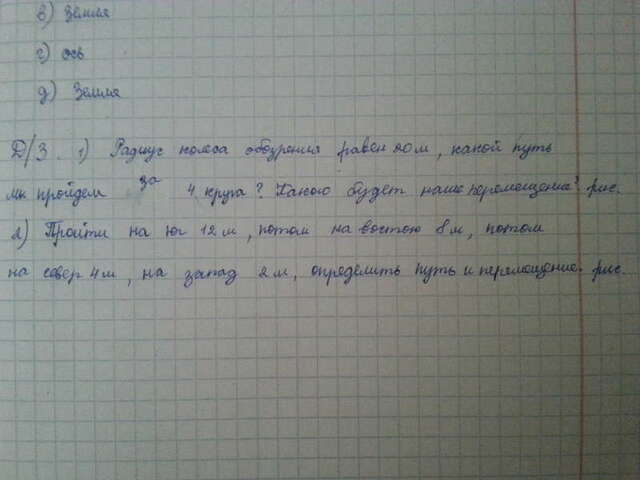 в) Земля
г) ось
д) Земля
Д/З. 1) Радиус колеса обозрения равен 20 м, какой путь
мы пройдем за 4 круга? Какого будет наше перемещение? рис.
2) Пройти на юг 12 м, потом на восток 8 м, потом
на север 4 м, на запад 2 м, определить путь и перемещение. рис.